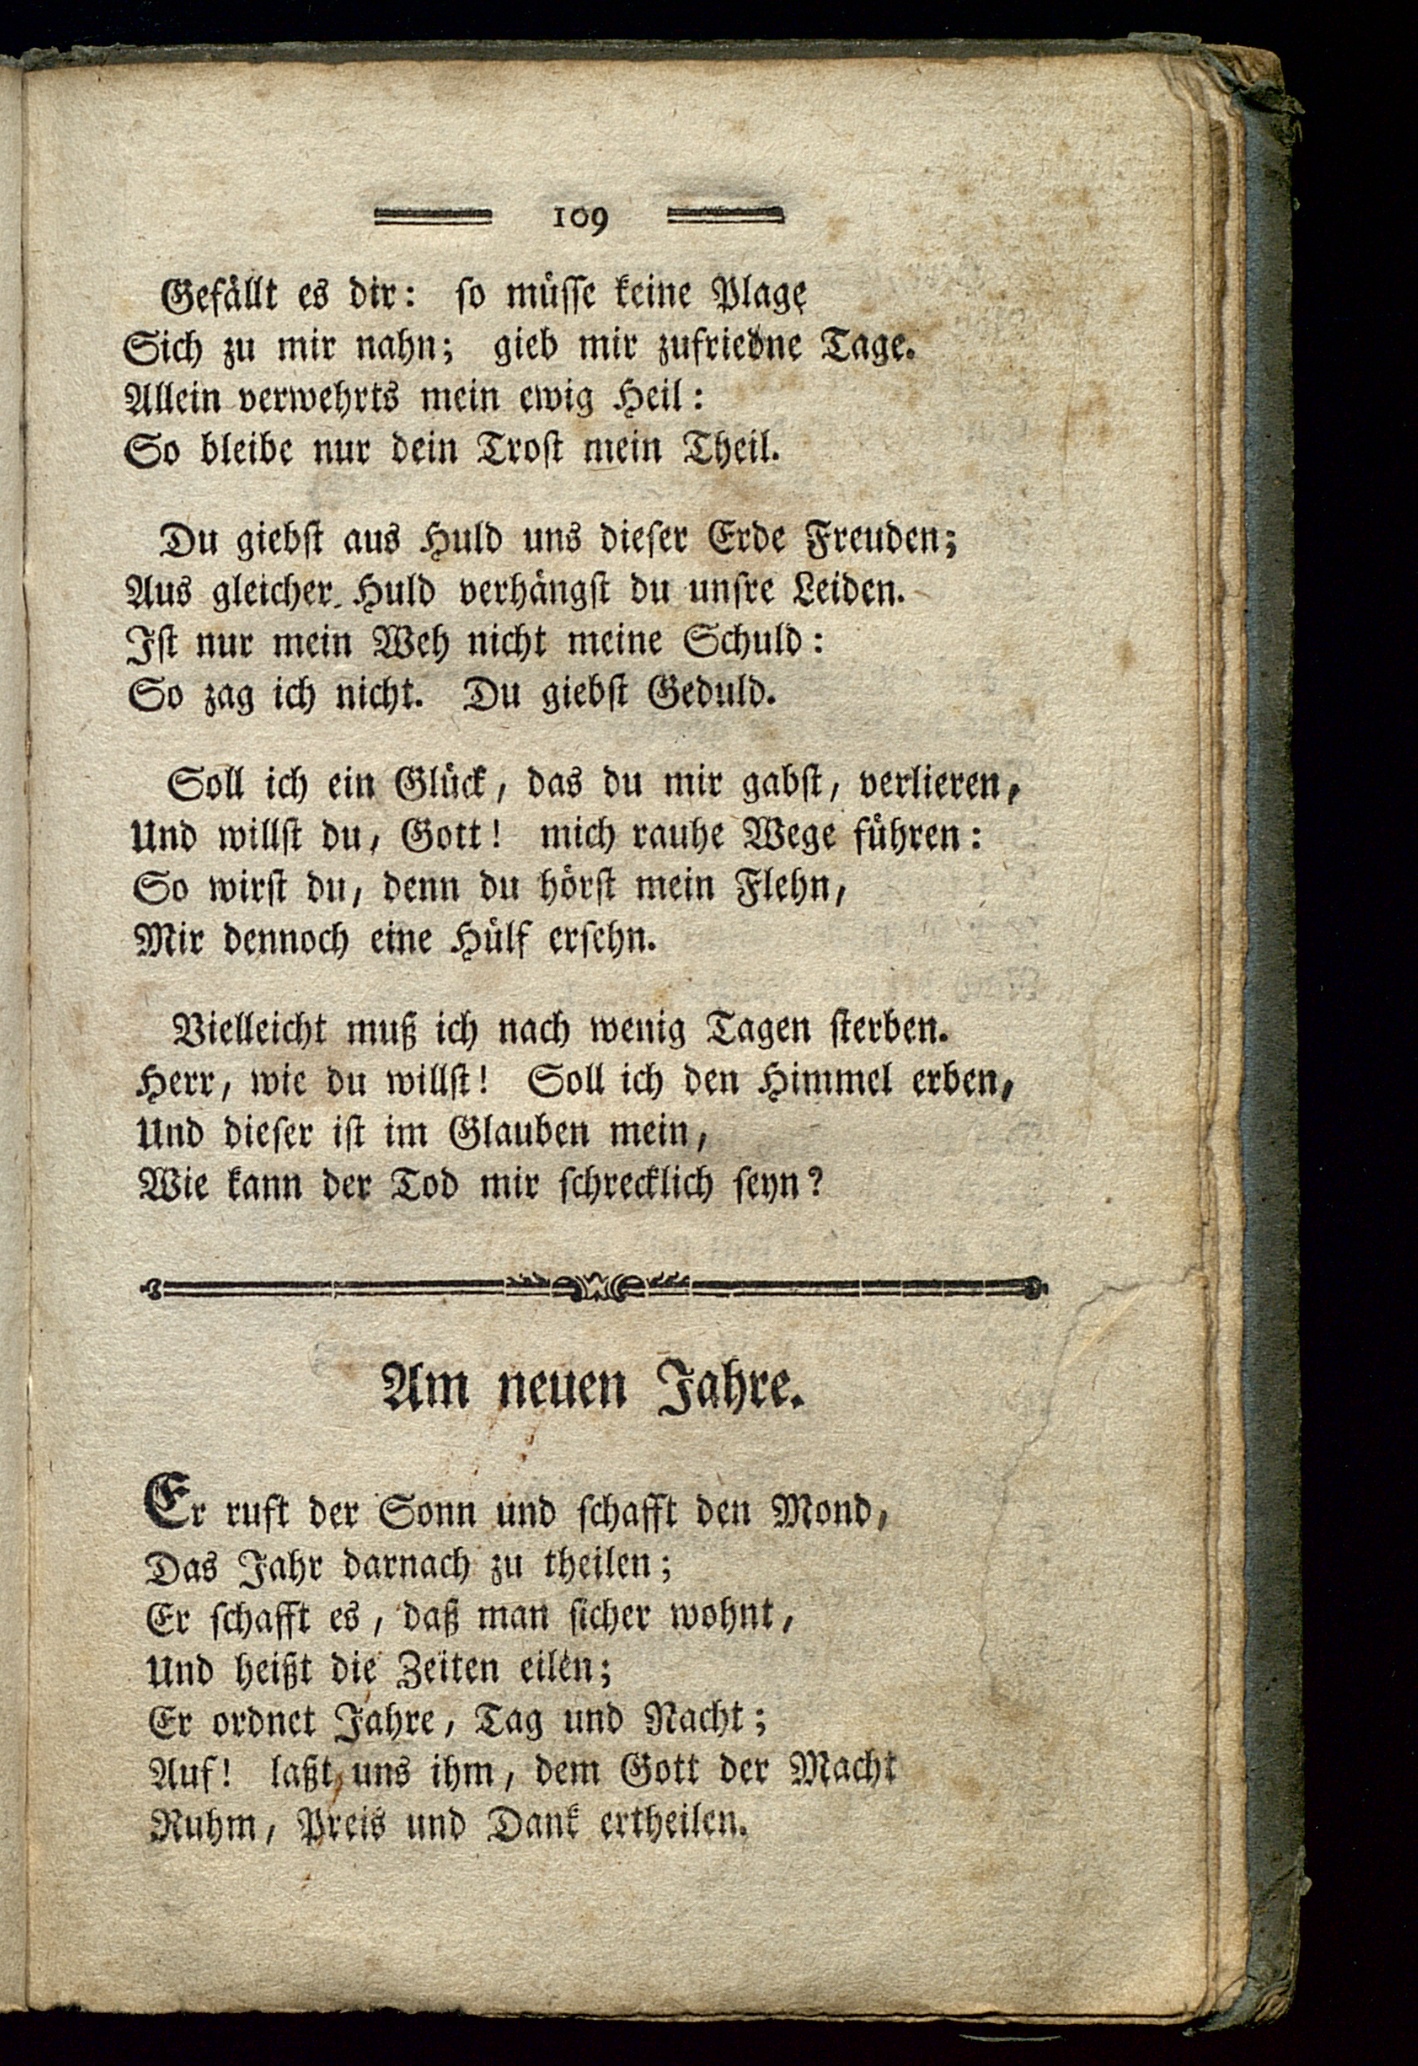 109
Gefällt es dir: so müsse keine Plage
Sich zu mir nahn; gieb mir zufriedne Tage.
Allein verwehrts mein ewig Heil:
So bleibe nur dein Trost mein Theil.
Du giebst aus Huld uns dieser Erde Freuden;
Aus gleicher Huld verhängst du unsre Leiden.
Ist nur mein Weh nicht meine Schuld:
So zag ich nicht. Du giebst Geduld.
Soll ich ein Glück, das du mir gabst, verlieren,
Und willst du, Gott! mich rauhe Wege führen:
So wirst du, denn du hörst mein Flehn,
Mir dennoch eine Hülf ersehn.
Vielleicht muß ich nach wenig Tagen sterben.
Herr, wie du willst! Soll ich den Himmel erben,
Und dieser ist im Glauben mein,
Wie kann der Tod mir schrecklich seyn?
Am neuen Jahre.
Er ruft der Sonn und schafft den Mond,
Das Jahr darnach zu theilen;
Er schafft es, daß man sicher wohnt,
Und heißt die Zeiten eilen;
Er ordnet Jahre, Tag und Nacht;
Auf! laßt uns ihm, dem Gott der Macht
Ruhm, Preis und Dank ertheilen.